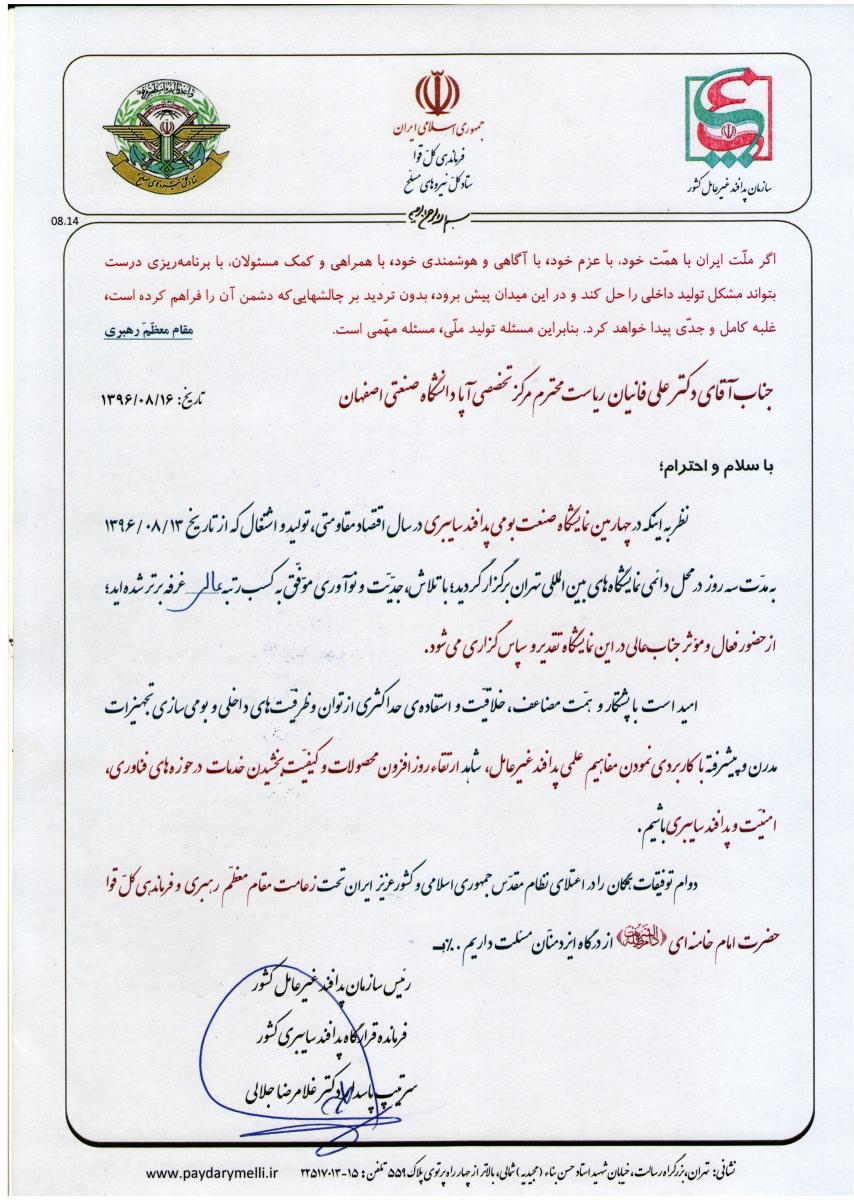 جمهوری اسلامی ایران
فرماندهی کلّ قوا
ستاد کلّ نیروهای مسلّح
سازمان پدافند غیرعامل کشور
ستاد کل نیروهای مسلح
بسم الله الرحمن الرحیم
08.14
اگر ملّت ایران با همّت خود، با عزم خود، با آگاهی و هوشمندی خود، با همراهی و کمک مسئولان، با برنامه‌ریزی درست
بتواند مشکل تولید داخلی را حل کند و در این میدان پیش برود، بدون تردید بر چالشهایی‌که دشمن آن را فراهم کرده است،
غلبه کامل و جدّی پیدا خواهد کرد. بنابراین مسئله تولید ملّی، مسئله مهّمی است. مقام معظّم رهبری
جناب آقای دکتر علی فانیان ریاست محترم مرکز تخصصی آپا دانشگاه صنعتی اصفهان تاریخ: ۱۳۹۶/۰۸/۱۶
با سلام و احترام؛
نظر به اینکه در چهارمین نمایشگاه صنعت بومی پدافند سایبری در سال اقتصاد مقاومتی، تولید و اشتغال که از تاریخ ۱۳۹۶/۰۸/۱۳
به مدّت سه روز در محل دائمی نمایشگاه‌های بین المللی تهران برگزار گردید؛ با تلاش، جدیّت و نوآوری موّفق به کسب رتبه عالی غرفه برتر شده اید؛
از حضور فعال و مؤثر جناب‌عالی در این نمایشگاه تقدیر و سپاس گزاری می‌شود.
امید است با پشتکار و همّت مضاعف، خلاقیّت و استفاده‌ی حداکثری از توان و ظرفیّت‌های داخلی و بومی‌سازی تجهیزات
مدرن و پیشرفته با کاربردی نمودن مفاهیم علمی پدافند غیرعامل، شاهد ارتقاء روزافزون محصولات و کیفیّت بخشیدن خدمات در حوزه‌های فناوری،
امنیّت و پدافند سایبری باشیم.
دوام توفیقات همگان را در اعتلای نظام مقدّس جمهوری اسلامی و کشور عزیز ایران تحت زعامت مقام معظّم رهبری و فرماندهی کلّ قوا
حضرت امام خامنه‌ای (دام ظله الشریف) از درگاه ایزد منّان مسئلت داریم.
رئیس سازمان پدافند غیرعامل کشور
فرمانده قرارگاه پدافند سایبری کشور
سرتیپ پاسدار دکتر غلامرضا جلالی
نشانی: تهران، بزرگراه رسالت، خیابان شهید استاد حسن بناء (مجیدیه) شمالی، بالاتر از چهار راه پرتوی پلاک ۵۵۹ تلفن: ۱۵-۲۲۵۱۷۰۱۳ www.paydarymelli.ir